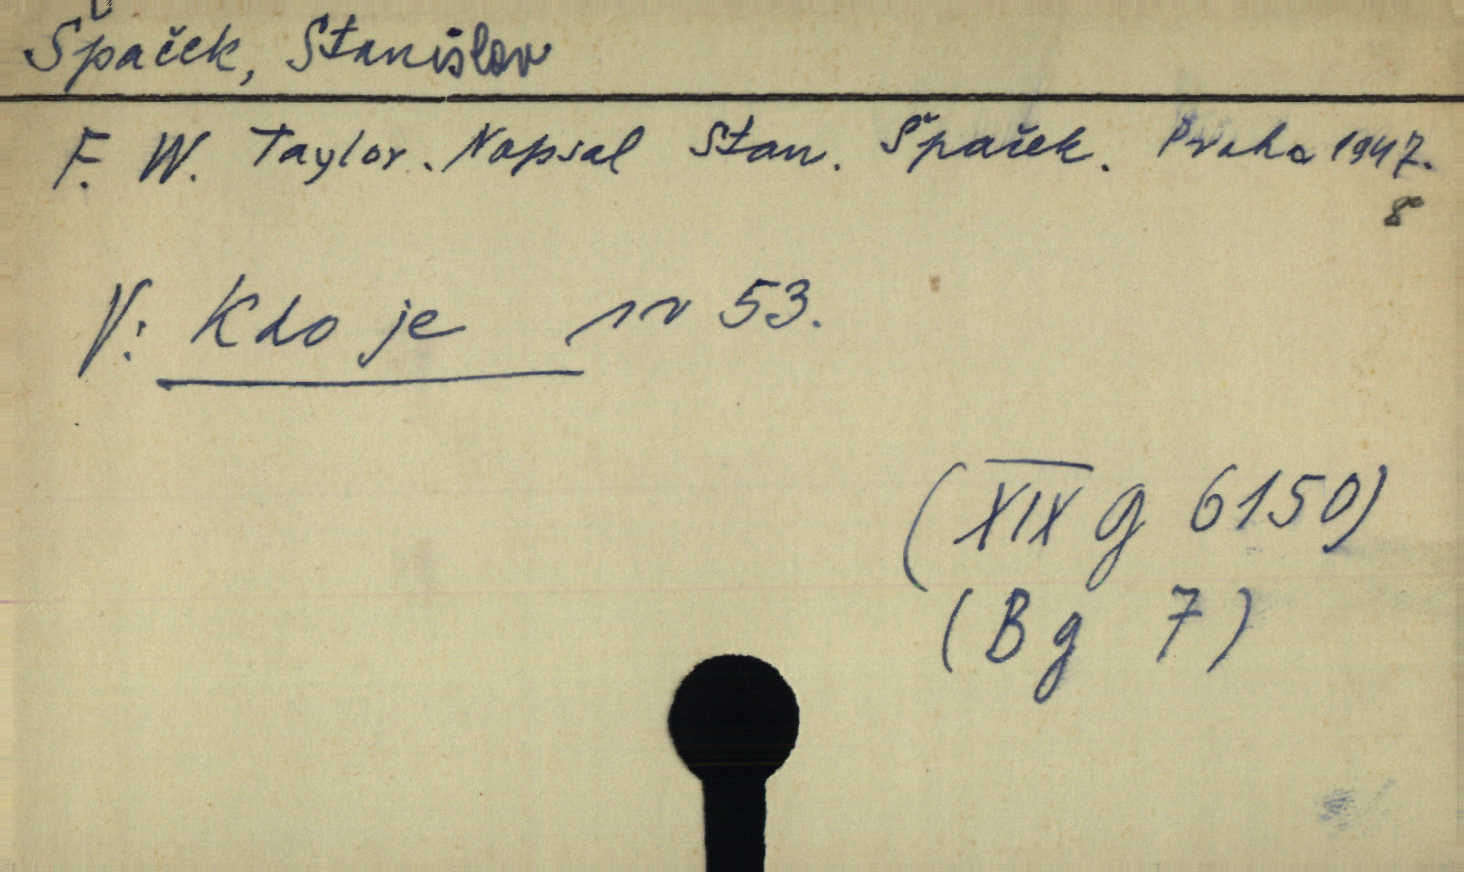 Špaček, Stanislav
F. W. Taylor. Napsal Stan. Špaček. Praha 1947.
8°
V: Kdo je sv 53.
(XIX g 6150)
(B g 7)